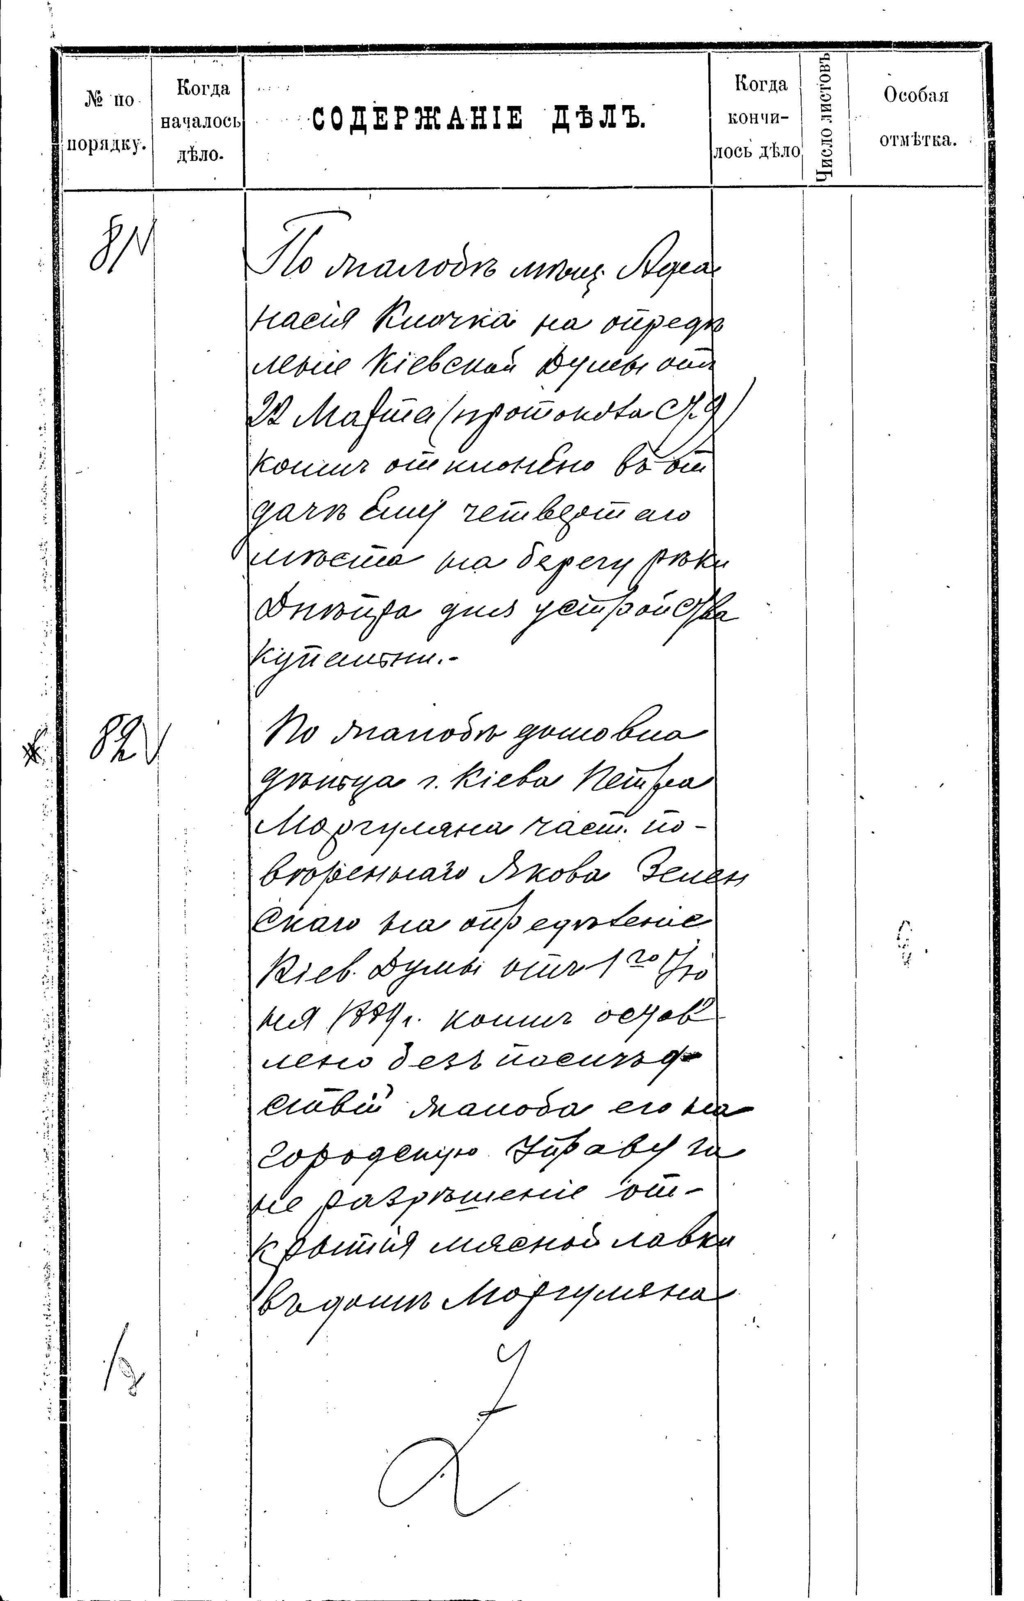 № по порядку.
Когда началось дѣло.
СОДЕРЖАНІЕ ДѢЛЪ.
Когда кончилось дѣло
Число листовъ
Особая отмѣтка.
81
По жалобѣ мѣщ. Афа
насія Клочка на опредѣ
леніе Кіевской Думы отъ
22 Марта (протокола ст. 9)
коимъ отклонено въ от
дачѣ ему четвертаго
мѣста на берегу рѣки
Днѣпра для устройства
купальни.-
82
По жалобѣ домовла
дѣльца г. Кіева Петра
Моргуляна част. по-
вѣреннаго Якова Зелен
скаго на опредѣленіе
Кіев. Думы отъ 1го Ію
ня 1884 г. коимъ остав
лено безъ послѣд
ствій жалоба его на
городскую Управу за
не разрѣшеніе от-
крытія мясной лавки
въ домѣ Моргуляна